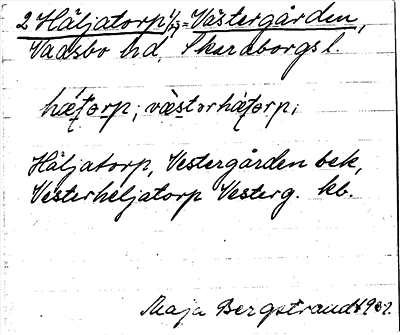 2 Häljatorp 1/23 = Västergården,
Vadsbo hd, Skaraborgs l.
hæ̀ʈorp; væ̀storhæ̀ʈorp;
Häljatorp, Vestergården bek,
Vesterheljatorp Vesterg. kb.
Maja Bergstrand